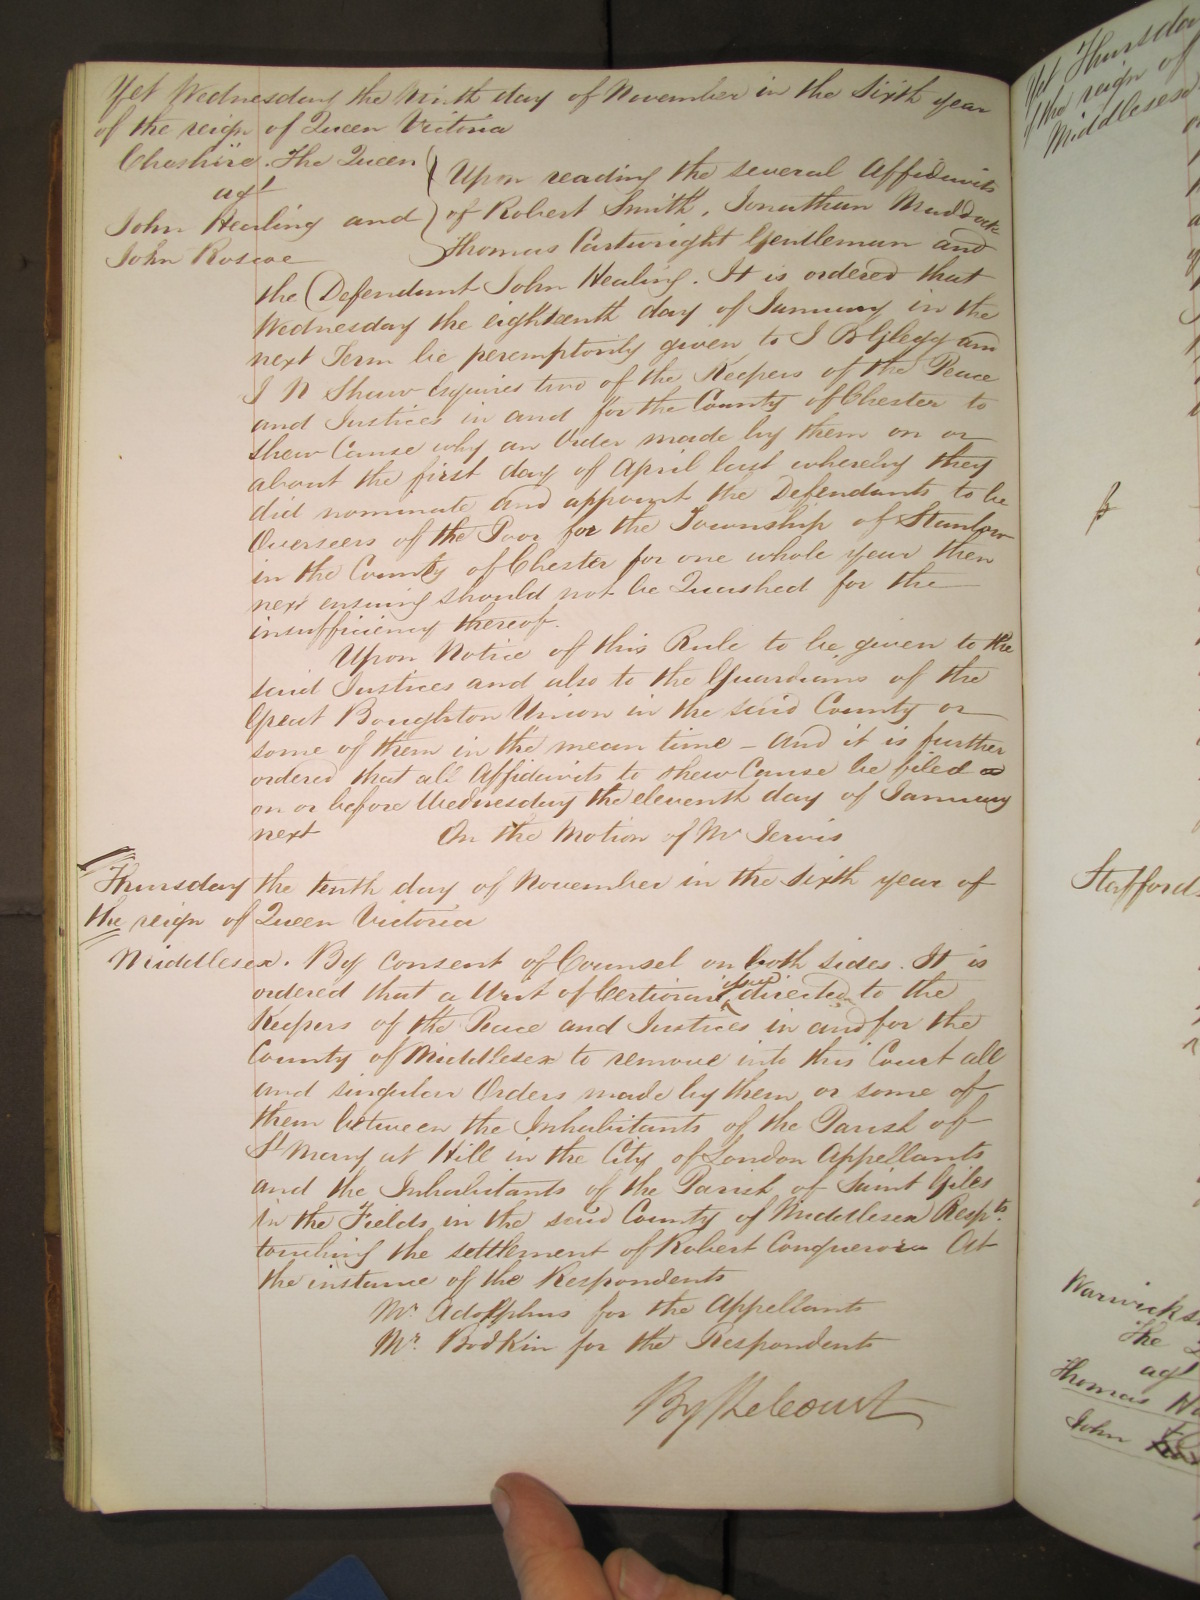 Yet Wednesday the Ninth day of November in the Sixth year
of the reign of Queen Victoria
Cheshire. The Queen
agt
John Healing and
John Roscoe
Upon reading the several Affidavits
of Robert Smith, Jonathan Maddock
Thomas Cartwright Gentleman and
the Defendant John Healing. It is ordered that
Wednesday the eighteenth day of January in the
next Term be peremptorily given to I B Glegg and
I N Shaw Esquires two of the Keepers of the Peace
and Justices in and for the County of Chester to
shew Cause why an Order made by them on or
about the first day of April last whereby they
did nominate and appoint the Defendants to be
Overseers of the Poor for the Township of Stanlow
in the County of Chester for one whole year then
next ensuing should not be Quashed for the
insufficiency thereof.
Upon Notice of this Rule to be given to the
said Justices and also to the Guardians of the
Great Boughton Union in the said County or
some of them in the mean time – And it is further
ordered that all Affidavits to shew Cause be filed
on or before Wednesday the eleventh day of January
next On the Motion of Mr Jervis
Thursday the tenth day of November in the Sixth year of
the reign of Queen Victoria
Middlesex. By Consent of Counsel on both sides. It is
ordered that a Writ of Certiorari issue directed to the
Keepers of the Peace and Justices in and for the
County of Middlesex to remove into this Court all
and singular Orders made by them or some of
them between the Inhabitants of the Parish of
St Mary at Hill in the City of London Appellants
and the Inhabitants of the Parish of Saint Giles
in the Fields in the said County of Middlesex Respts.
touching the settlement of Robert Conqueror At
the instance of the Respondents
Mr Adolphus for the Appellants
Mr. Bodkin for the Respondents
By the Court
Yet Thursday
of the reign of
Middlesex
Stafford
Warwicks
The
agt
Thomas
John